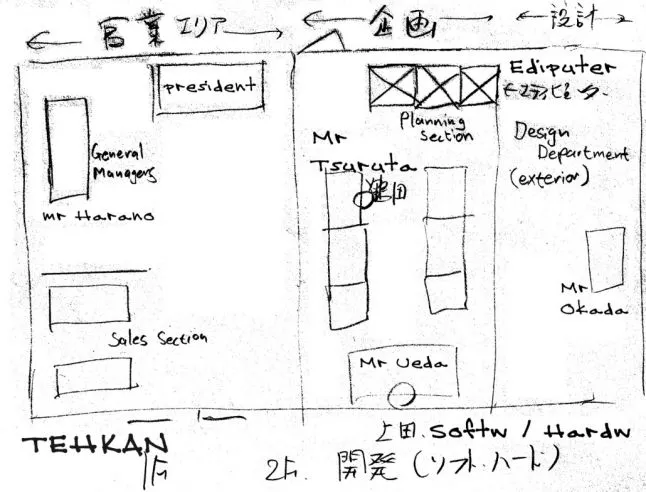 営業エリア
企画
設計
president
General
Managers
Mr Harano
Sales Section
Planning
Section
Mr
Tsuruta
池田
Mr Ueda
Ediputer
エディピュータ
Design
Department
(exterior)
Mr
Okada
TEHKAN
1F
上田. Softw / Hardw
2F. 開発 (ソフト.ハード)